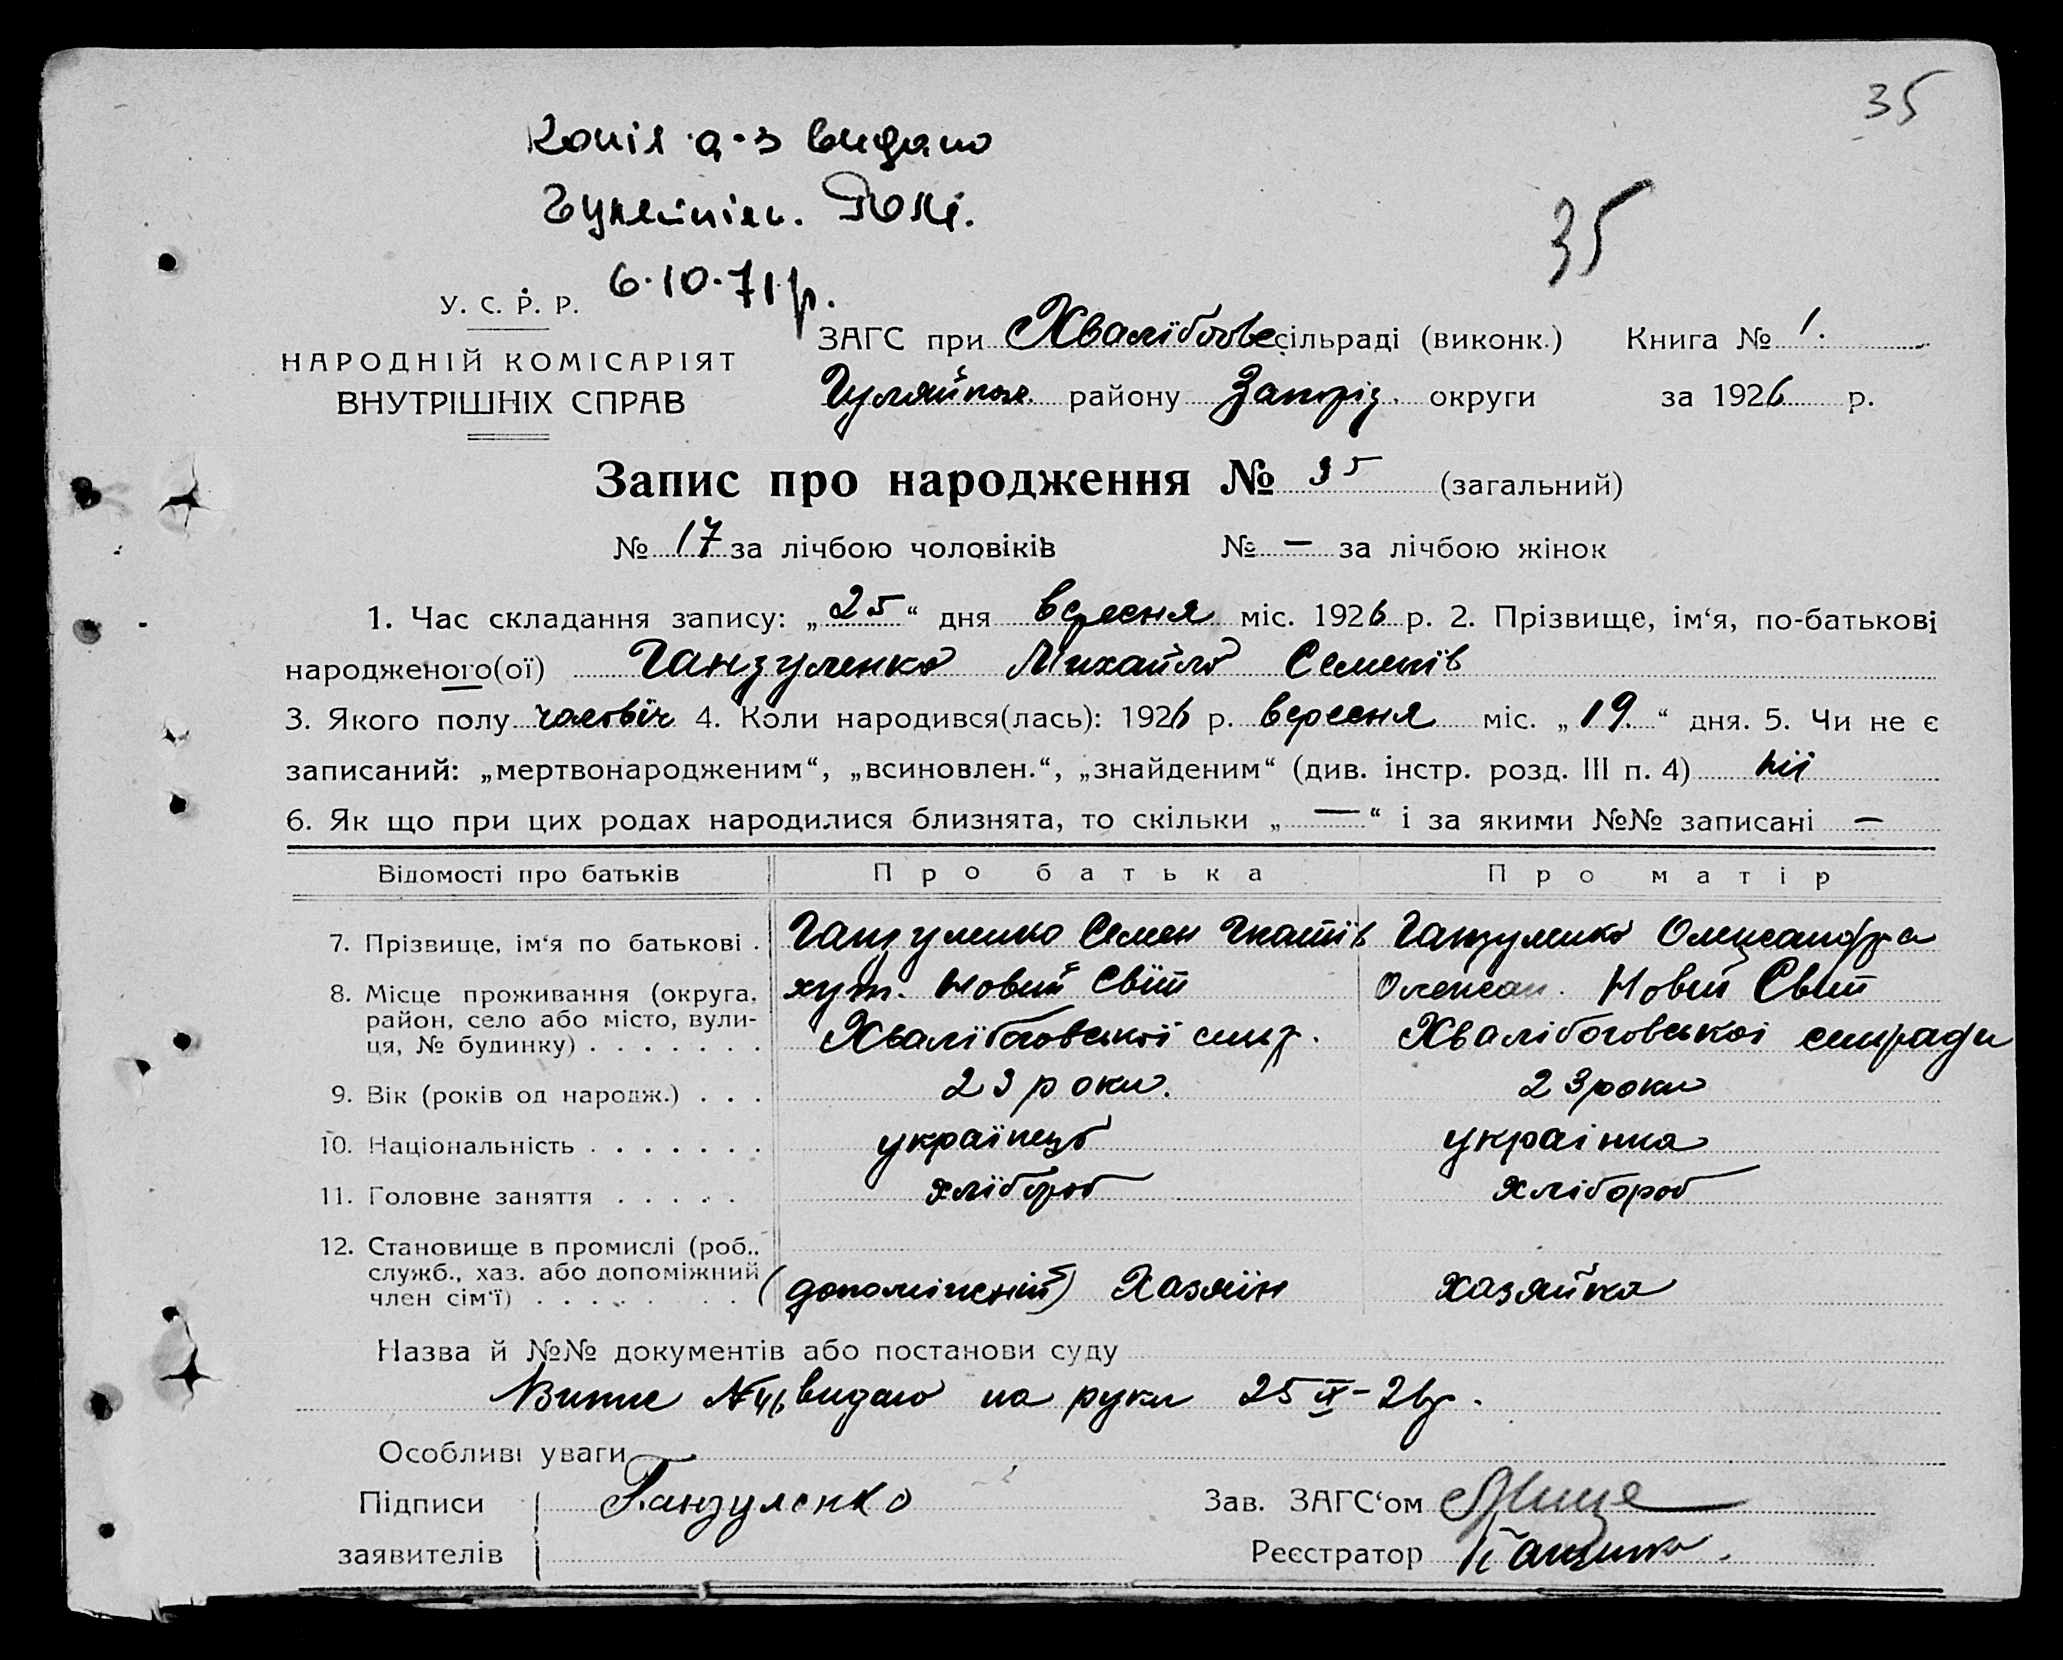 35
Копія а-з видано
Гуляйпіль. РОМ.
6.10.71 р.
35
У. С. Р. Р.
НАРОДНІЙ КОМІСАРІЯТ
ВНУТРІШНІХ СПРАВ
ЗАГС при Хвалібогове сільраді (виконк.) Книга № 1.
Гуляйпол. району Запоріз. округи за 1926 р.
Запис про народження № 35 (загальний)
№ 17 за лічбою чоловіків № — за лічбою жінок
1. Час складання запису: „25“ дня вересня міс. 1926 р. 2. Прізвище, ім‘я, по-батькові
народженого(ої) Ганзуленко Михайло Семенів
3. Якого полу чоловіч 4. Коли народився(лась): 1926 р. вересня міс. „19.“ дня. 5. Чи не є
записаний: „мертвонародженим“, „всиновлен.“, „знайденим“ (див. інстр. розд. III п. 4) ні
6. Як що при цих родах народилися близнята, то скільки „—“ і за якими №№ записані —
Відомості про батьків Про батька Про матір
7. Прізвище, ім‘я по батькові . Ганзуленко Семен Гнатів Ганзуленко Олександра
8. Місце проживання (округа, район, село або місто, вулиця, № будинку) . . . . . . . хут. Новий Світ Олексан. Новий Світ
Хвалібоговської сільр. Хвалібоговської сільради
9. Вік (років од народж.) . . . 23 роки. 23 роки
10. Національність . . . . . . . українець українка
11. Головне заняття . . . . . хлібороб хлібороб
12. Становище в промислі (роб., служб., хаз. або допоміжний член сім‘ї) . . . . . . . (допоміжній) Хазяїн хазяйка
Назва й №№ документів або постанови суду
Витяг № 46 видано на руки 25 IX-26 р.
Особливі уваги
Підписи Ганзуленко Зав. ЗАГС‘ом
заявителів Реєстратор